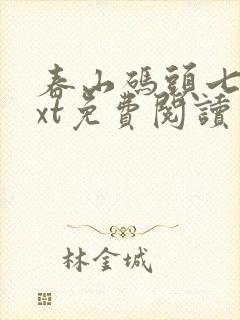 春山碼頭七
xt免費閱讀
林金城